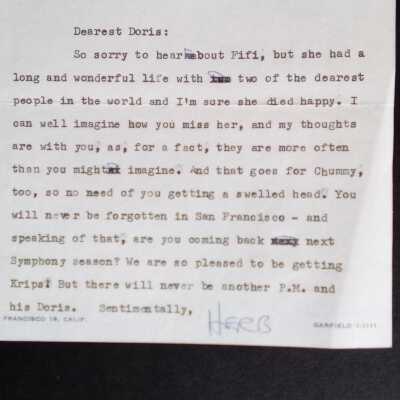 Dearest Doris:
So sorry to hear about Fifi, but she had a
long and wonderful life with two of the dearest
people in the world and I'm sure she died happy. I
can well imagine how you miss her, and my thoughts
are with you, as, for a fact, they are more often
than you might imagine. And that goes for Chummy,
too, so no need of you getting a swelled head. You
will never be forgotten in San Francisco - and
speaking of that, are you coming back next
Symphony season? We are so pleased to be getting
Krips! But there will never be another P.M. and
his Doris. Sentimentally, HERB
FRANCISCO 19, CALIF. GARFIELD 1-1111